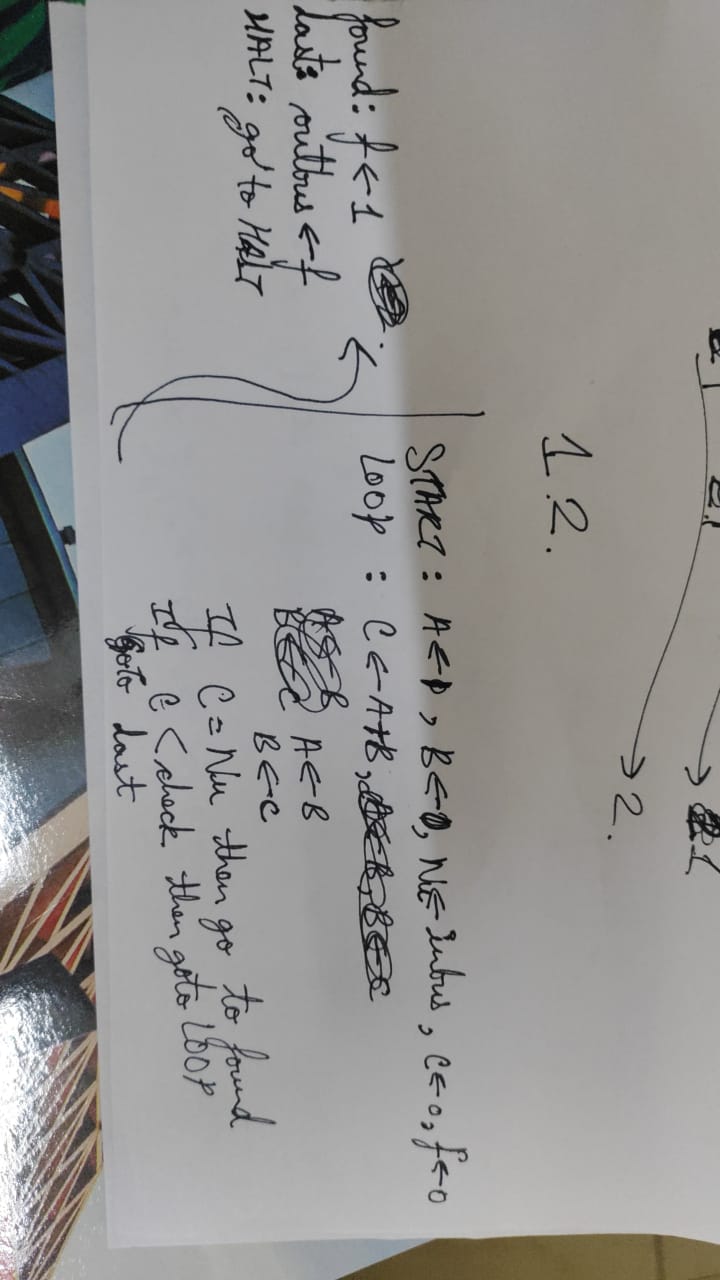 → 2.
1 2.
START: A←0, B←0, N← Inbus, C←0, f←0
LOOP : C←A+B,
A←B
B←C
If C = Nu then go to found
If C < check then goto LOOP
goto last
found: f←1
last: outbus ← f
HALT: go to HALT